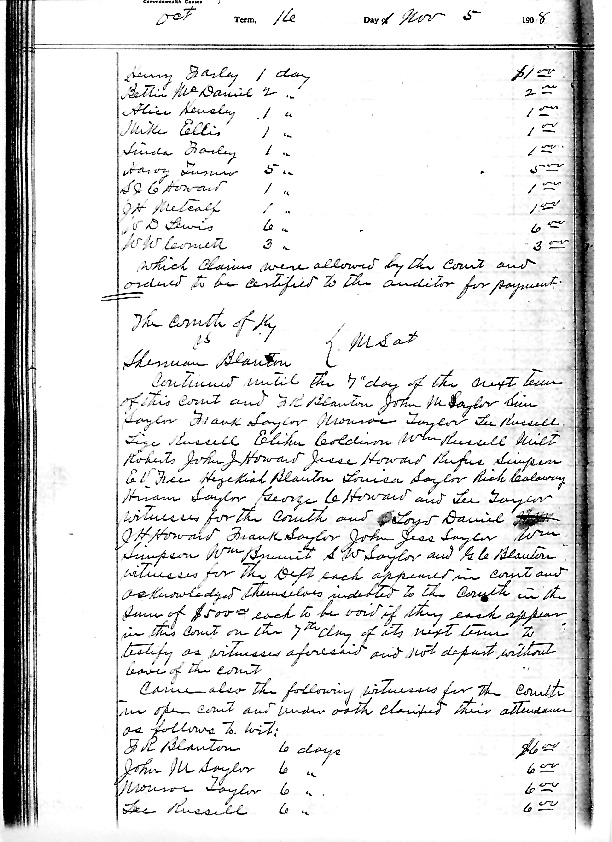 Commonwealth Cases
Oct Term, 16 Day Nov 5 1908
Henry Farley 1 day $1 00
Bettie McDaniel 2 " 2 00
Alice Hensley 1 " 1 00
Mike Ellis 1 " 1 00
Linda Farley 1 " 1 00
Harvy Turner 5 " 5 00
S & C Howard 1 " 1 00
J H Metcalf 1 " 1 00
W D Lewis 6 " 6 00
W W Cornett 3 " 3 00
Which claims were allowed by the court and
ordered to be certified to the auditor for payment.
The Comth of Ky
vs
Sherman Blanton
Continued until the 7" day of the next term
of this court and F R Blanton John M Saylor Sim
Saylor Frank Saylor Monroe Taylor Lee Russell
Lize Russell Elihu Coldiron Wm Russell Milt
Roberts John J Howard Jesse Howard Rufus Simpson
E V Free Hezekiah Blanton Louisa Saylor Rich Calaway
Hiram Saylor George C Howard and Lee Taylor
witnesses for the Comth and Loyd Daniel
J H Howard Frank Saylor John Jess Saylor Wm
Simpson Wm S W Saylor and G C Blanton
witnesses for the Deft each appeared in court and
acknowledged themselves indebted to the Comth in the
sum of $500 00 each to be void if they each appear
in this court on the 7th day of its next term to
testify as witnesses aforesaid and not depart without
leave of the court
Came also the following witnesses for the Comth
in open court and under oath claimed their attendance
as follows to wit:
F R Blanton 6 days $6 00
John M Saylor 6 " 6 00
Monroe Taylor 6 " 6 00
Lee Russell 6 " 6 00